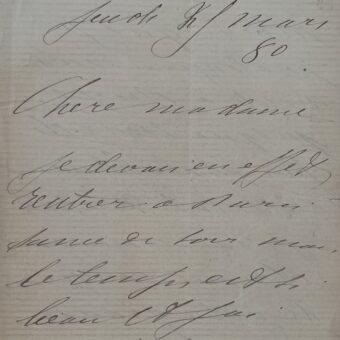 Jeudi 25 mars
80
Chere madame
je devais en effet
rentrer a Paris
samedi soir mais
le temps est si
beau et j'ai